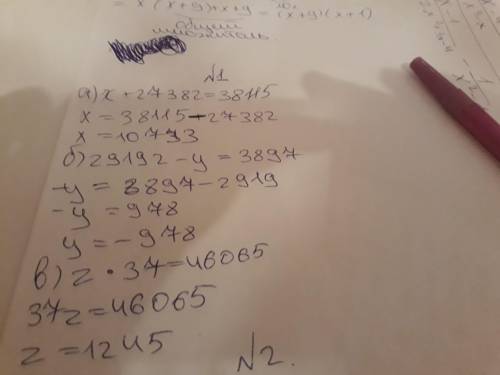 = x (x+y)+x+y = (x+y)(x+1)
общий
множитель.
№1
а) x + 27382 = 38115
x = 38115 - 27382
x = 10733
б) 29192 - y = 3897
-y = 3897 - 2919
-y = 978
y = -978
в) z · 37 = 46065
37z = 46065
z = 1245
№2.